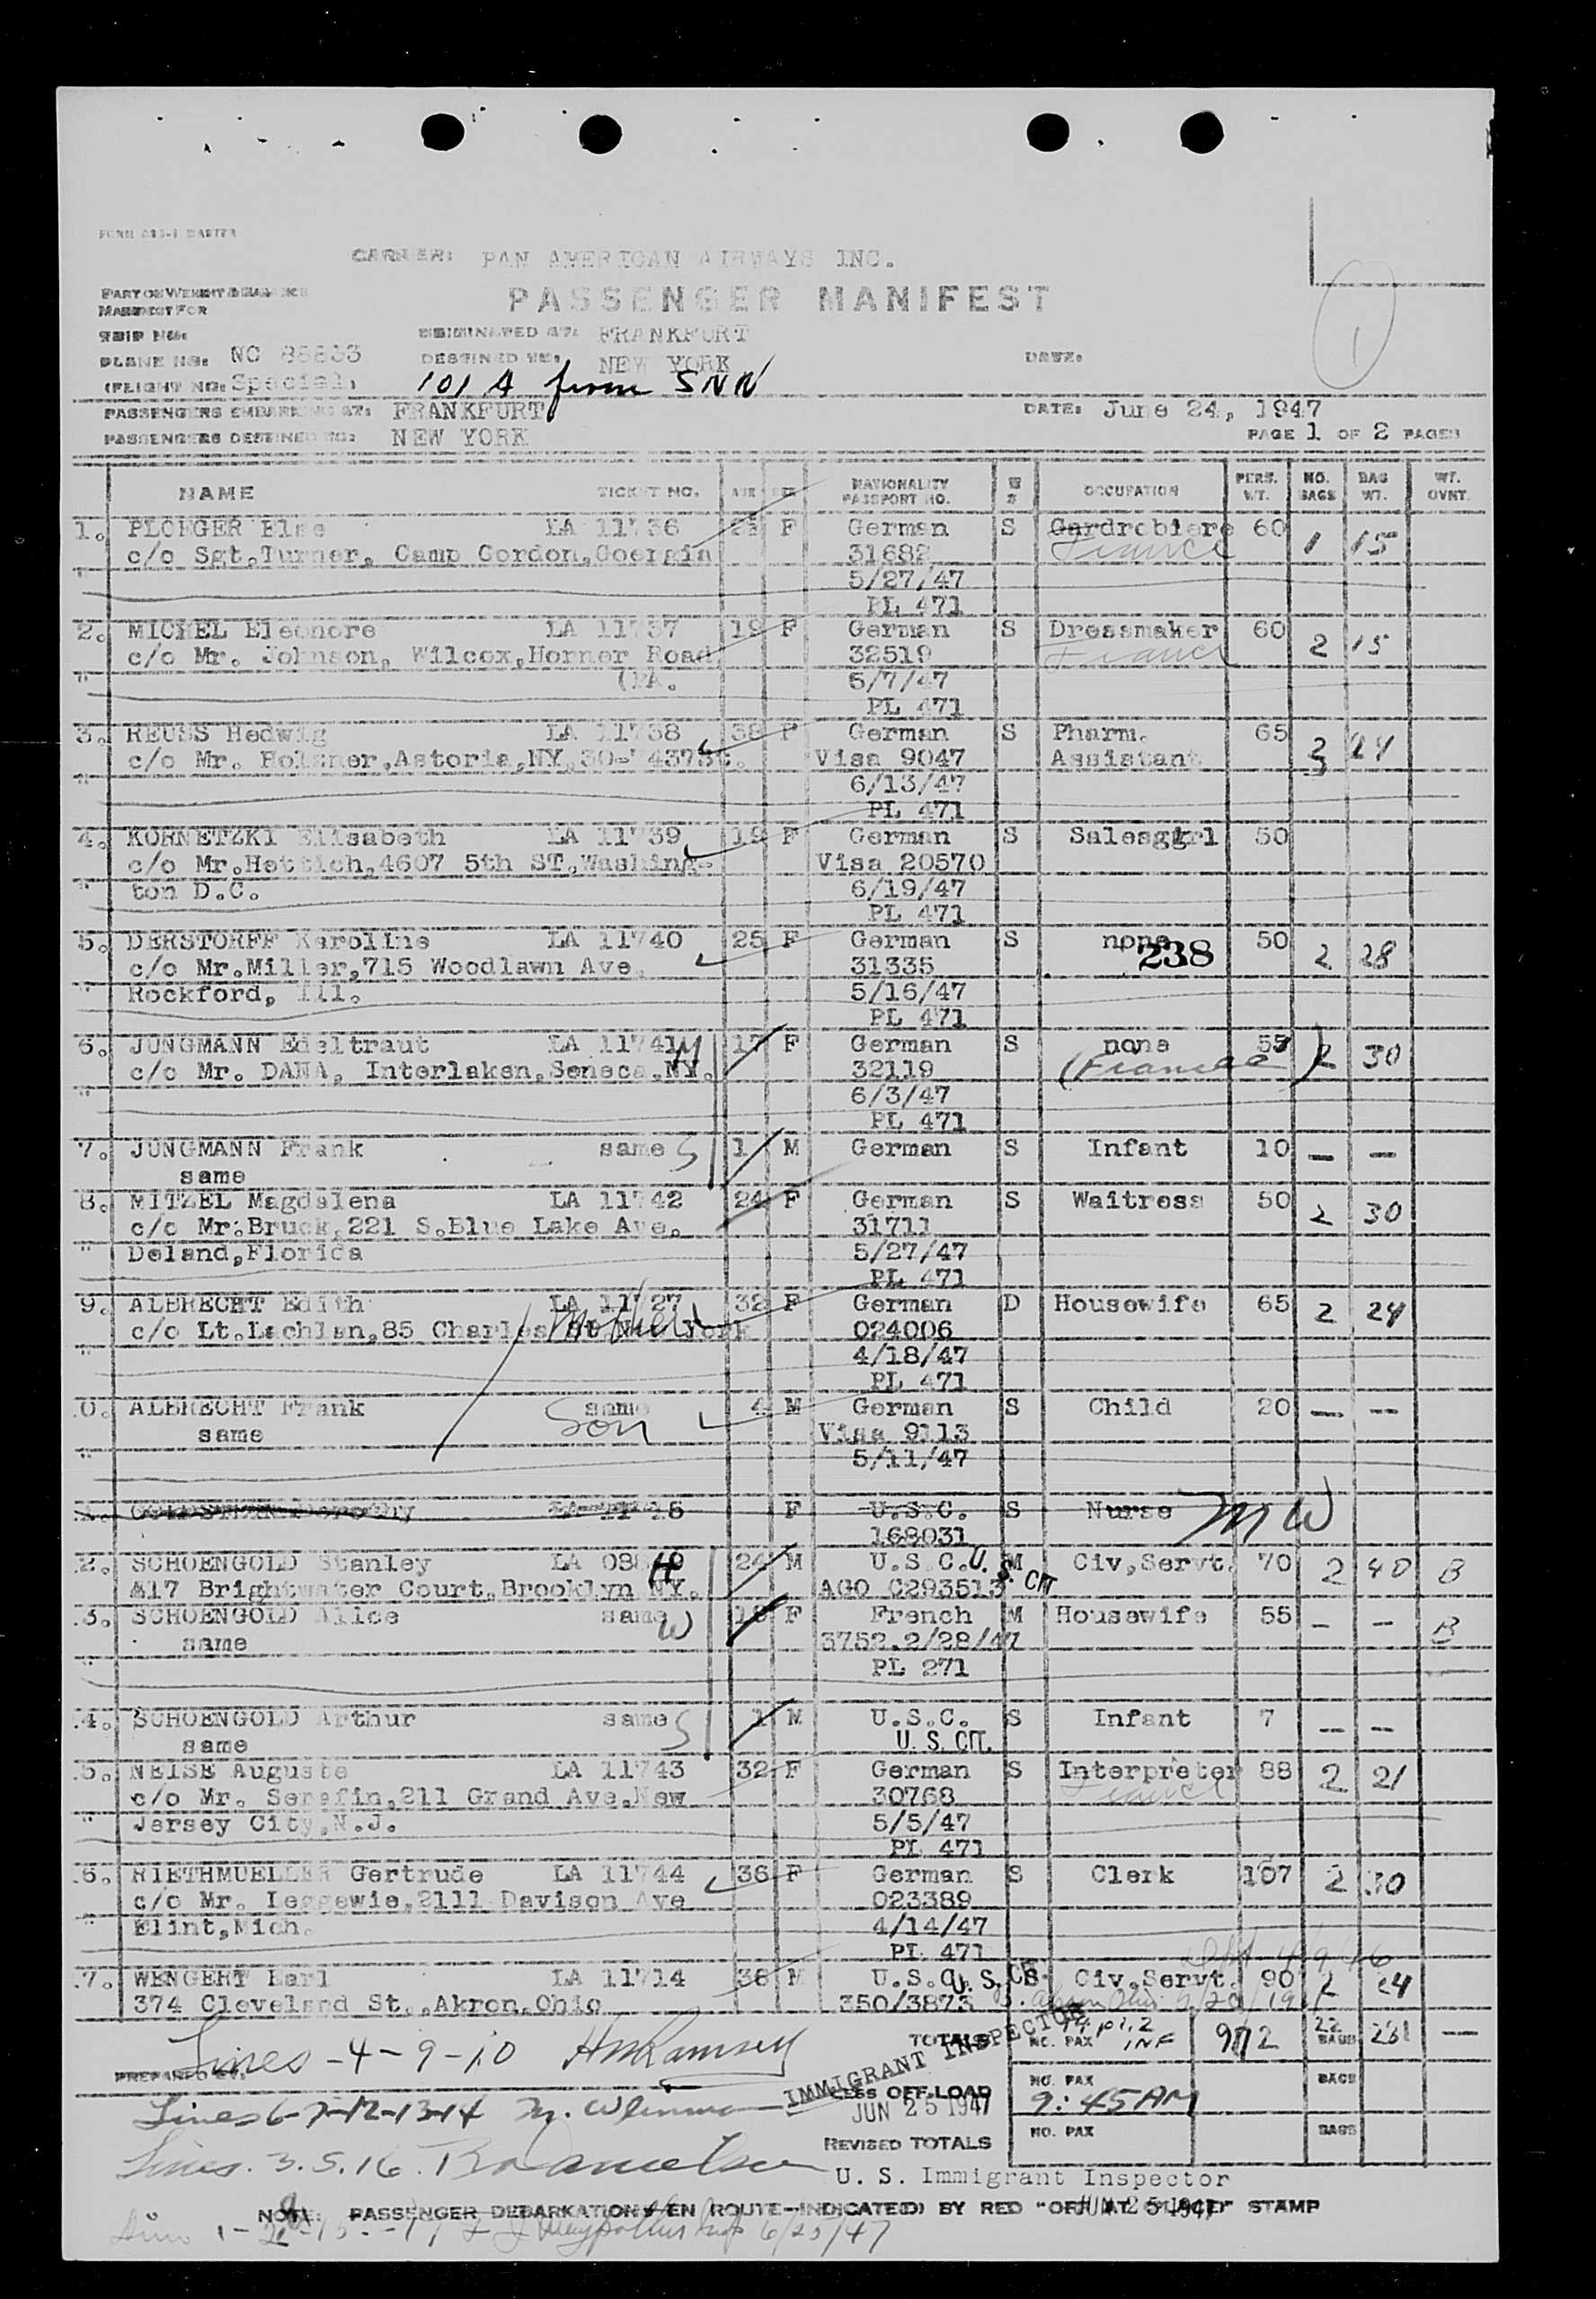 CARRIER: PAN AMERICAN AIRWAYS INC.
PASSENGER MANIFEST
PART OF WEIGHT & BALANCE
MANIFEST FOR
TRIP NO:
ORIGINATED AT: FRANKFURT
PLANE NO: NC
DESTINED TO: NEW YORK
DATE:
1
(FLIGHT NO: Special)
101 A from SNN
PASSENGERS EMBARKING AT: FRANKFURT
DATE: June 24, 1947
PASSENGERS DESTINED TO: NEW YORK
PAGE 1 OF 2 PAGES
NAME TICKET NO. AGE SEX NATIONALITY PASSPORT NO. OCCUPATION PERS. WT. NO. BAGS BAG WT. WT. OVNT.
1. PLOEGER Else LA 11736 F German S Gardrobiere 60 1 15
c/o Sgt.Turner, Camp Gordon,Goergia 31682
5/27/47
PL 471
2. MICHEL Eleonore LA 11737 19 F German S Dressmaker 60 2 15
c/o Mr. Johnson, Wilcox,Horner Road 32519
(PA. 5/7/47
PL 471
3. REUSS Hedwig LA 11738 38 F German S Pharm. 65 3 24
c/o Mr. Holzner,Astoria,NY,30- 4373t. Visa 9047 Assistant
6/13/47
PL 471
4. KORNETZKI Elisabeth LA 11739 19 F German S Salesgirl 50
c/o Mr.Hettich,4607 5th ST.Washing- Visa 20570
ton D.C. 6/19/47
PL 471
5. DERSTORFF Karoline LA 11740 25 F German S none 50 2 28
c/o Mr.Miller,715 Woodlawn Ave. 31335 238
Rockford, Ill. 5/16/47
PL 471
6. JUNGMANN Edeltraut LA 11741 M 17 F German S none 55 2 30
c/o Mr. DANA, Interlaken,Seneca,NY. 32119 (Fiancee)
6/3/47
PL 471
7. JUNGMANN Frank same S 1 M German S Infant 10 — —
same
8. MITZEL Magdalena LA 11742 24 F German S Waitress 50 2 30
c/o Mr.Bruck,221 S.Blue Lake Ave. 31711
Deland,Florida 5/27/47
PL 471
9. ALBRECHT Edith LA 11727 32 F German D Housewife 65 2 24
c/o Lt.Lachlan,85 Charles St New York Mother 024006
4/18/47
PL 471
0. ALBRECHT Frank same 4 M German S Child 20 — —
same Son Visa 9113
5/11/47
Dorothy F U.S.C. S Nurse MW
168031
2. SCHOENGOLD Stanley H 24 M U.S.C. U.S. CIT M Civ,Servt. 70 2 40 B
417 Brightwater Court,Brooklyn NY. AGO C293513
3. SCHOENGOLD Alice same W F French M Housewife 55 - - B
same 3752.2/28/47
PL 271
4. SCHOENGOLD Arthur same S 1 M U.S.C. S Infant 7 — —
same U. S. CIT.
5. NEISE Auguste LA 11743 32 F German S Interpreter 88 2 21
c/o Mr. Serafin,211 Grand Ave,New 30768
Jersey City,N.J. 5/5/47
PL 471
6. RIETHMUELLER Gertrude LA 11744 36 F German S Clerk 107 2 30
c/o Mr. Leggewie,2111 Davison Ave 023389
Flint,Mich. 4/14/47
PL 471
7. WENGERT Earl LA 11714 38 M U.S.C. U.S. CIT. S Civ,Servt. 90 2 24
374 Cleveland St.,Akron,Ohio 350/3873
Lines - 4 - 9 - 10 HM Ramsey
PREPARED BY:
TOTALS NO. PAX INF 972 22 BAGS 281 —
IMMIGRANT INSPECTOR
LESS OFF-LOAD NO. PAX BAGS
Lines 6-7-12-13-14
JUN 25 1947
9:45AM
REVISED TOTALS NO. PAX BAGS
Lines. 3. 5. 16.
U. S. Immigrant Inspector
NOTE: PASSENGER DEBARKATION EN ROUTE INDICATED BY RED "OFF AT PLACED" STAMP
JUN 25 1947
6/25/47